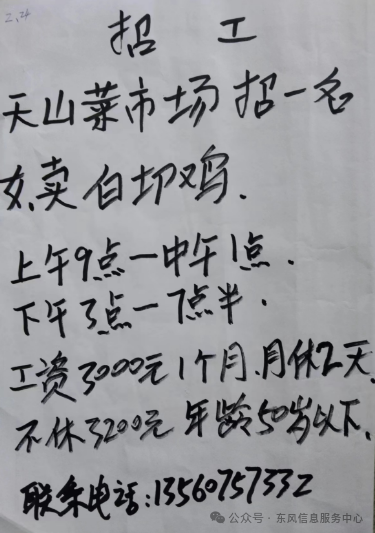 2.4
招工
天山菜市场招一名
女卖白切鸡.
上午9点一中午1点.
下午3点一7点半.
工资3000元1个月.月休2天.
不休3200元 年龄50岁以下.
联系电话:13560757332
公众号·东风信息服务中心